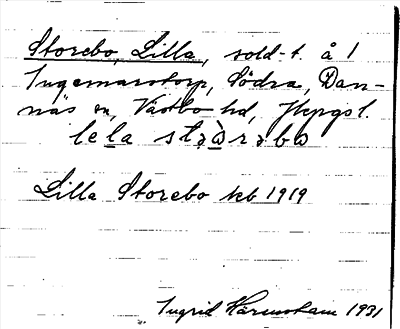 Storebo, Lilla, sold-t. å 1
Ingemarstorp, Södra, Dan-
näs sn, Västbo hd, Jkpgs l.
lela stərəbo
Lilla Storebo kb 1919
Ingrid 1931